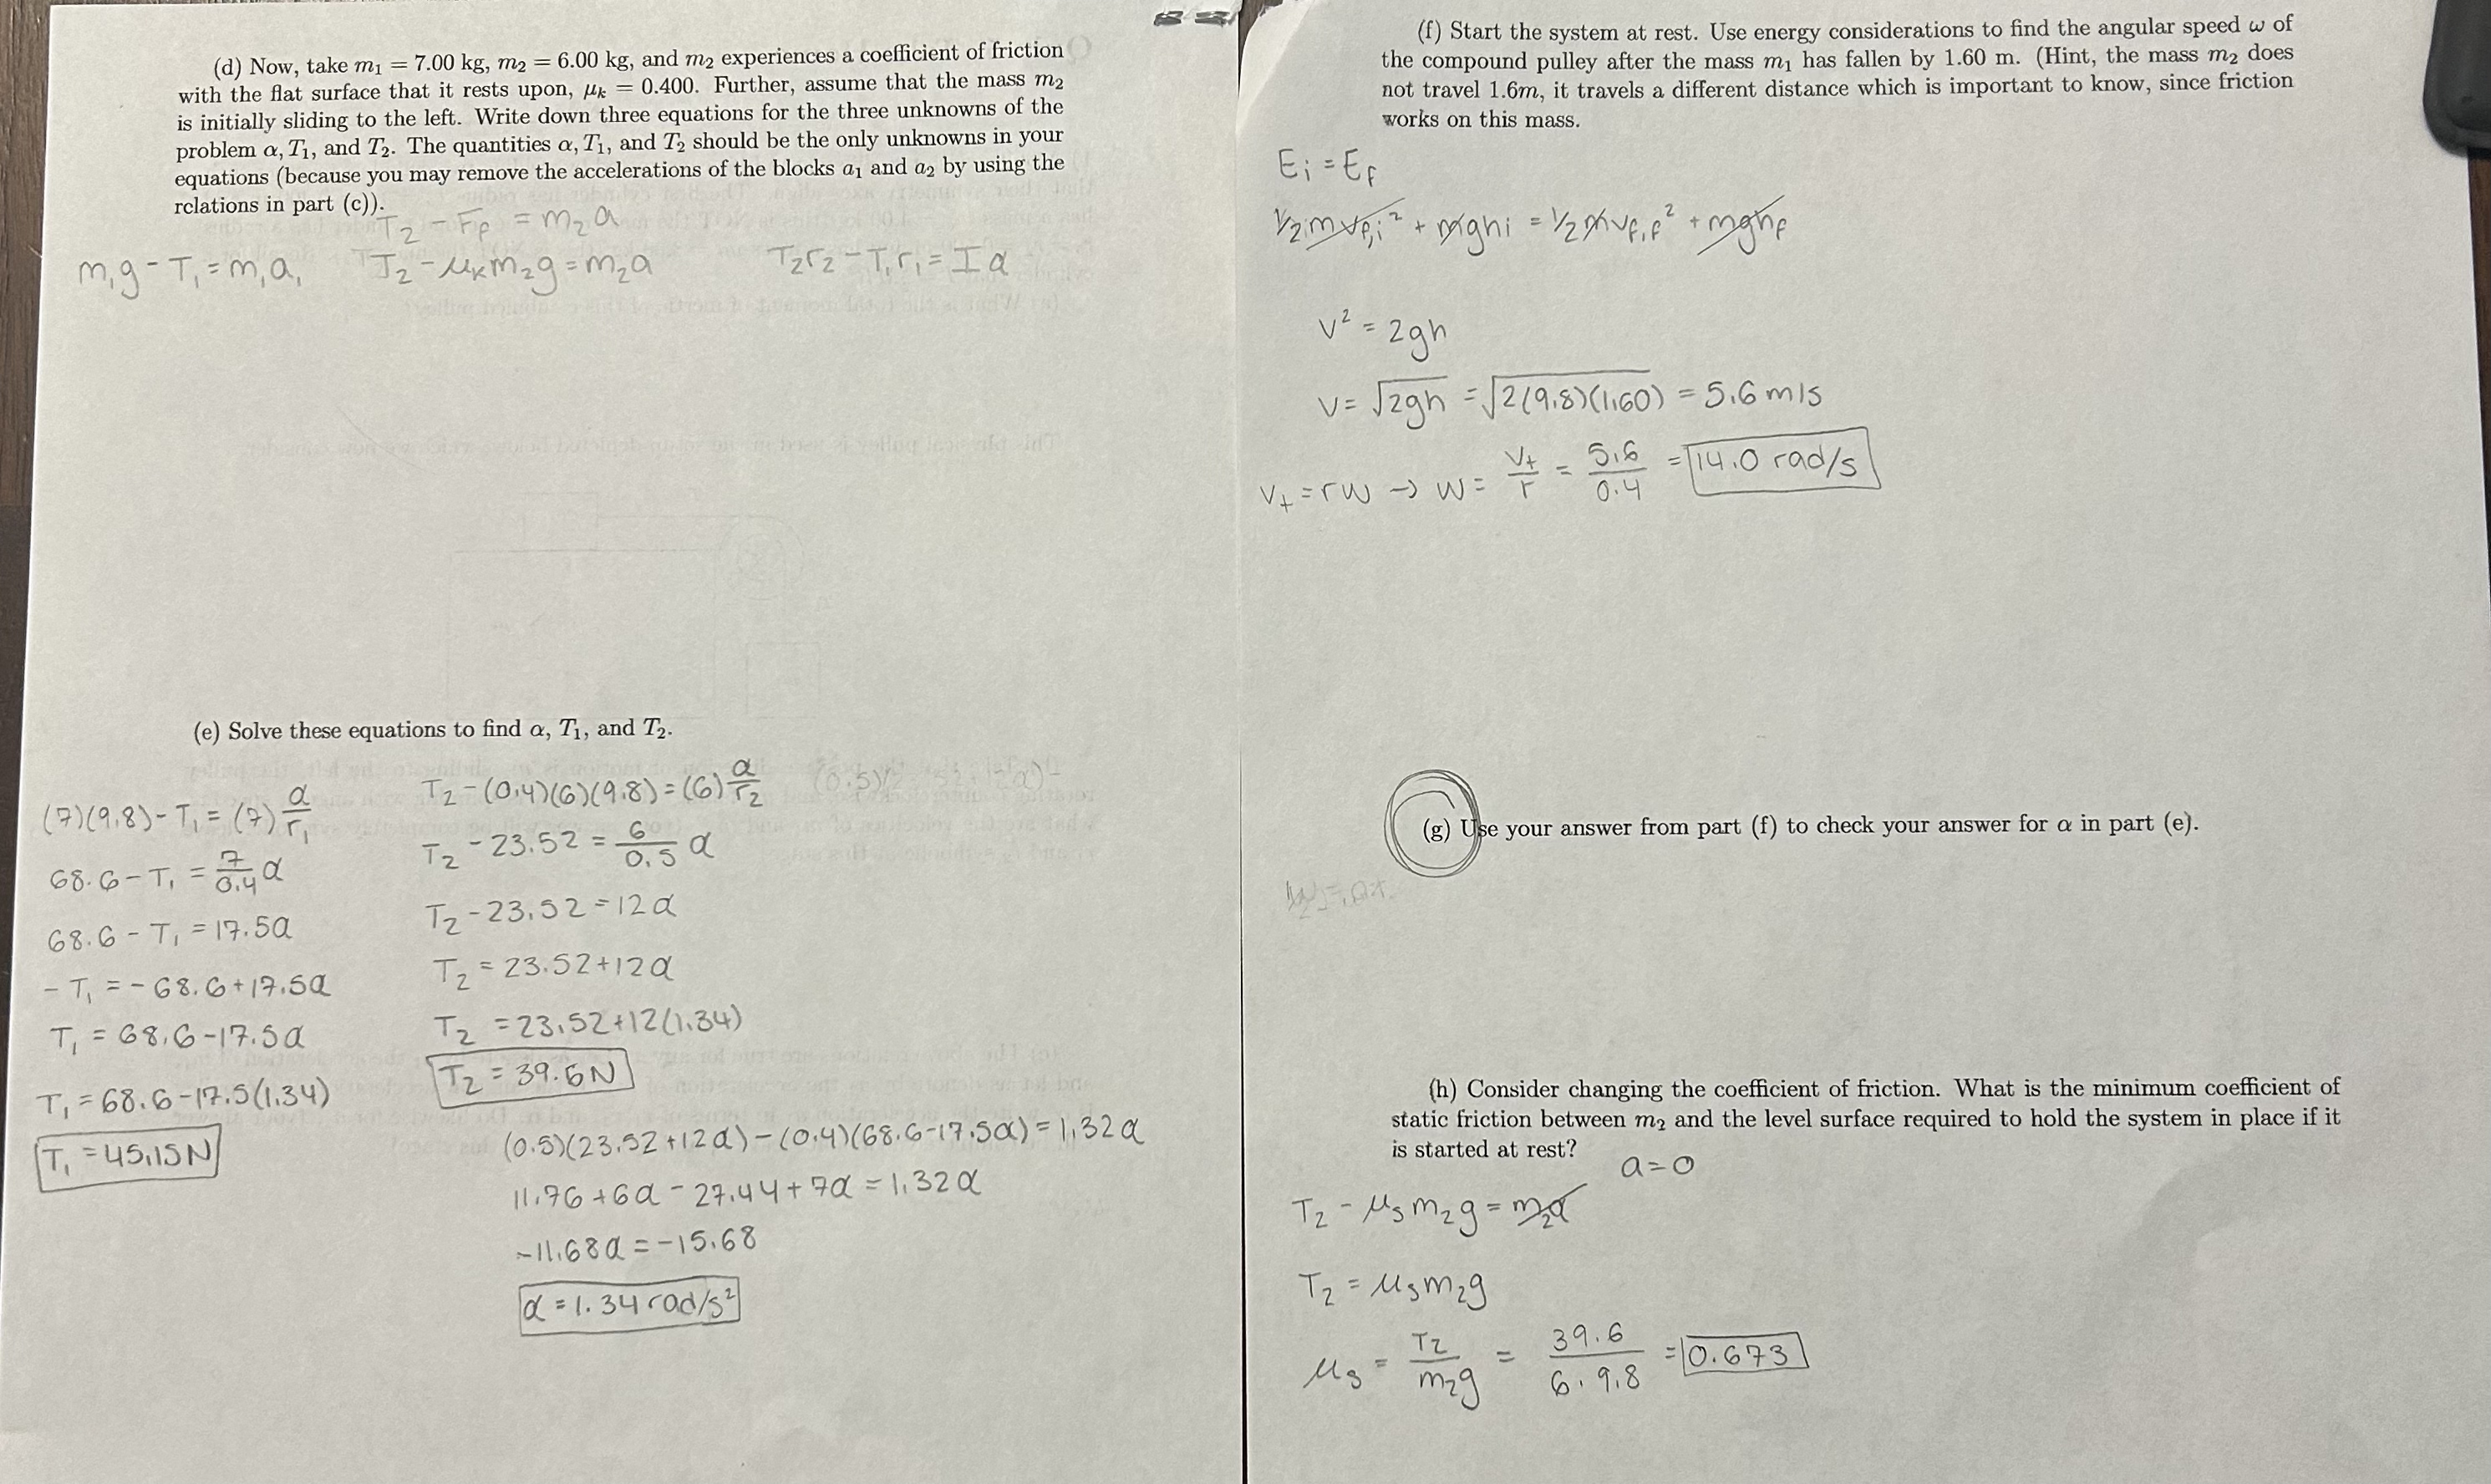 (d) Now, take m₁ = 7.00 kg, m₂ = 6.00 kg, and m₂ experiences a coefficient of friction
with the flat surface that it rests upon, μₖ = 0.400. Further, assume that the mass m₂
is initially sliding to the left. Write down three equations for the three unknowns of the
problem α, T₁, and T₂. The quantities α, T₁, and T₂ should be the only unknowns in your
equations (because you may remove the accelerations of the blocks a₁ and a₂ by using the
relations in part (c)).
T₂ - F_f = m₂a
m₁g - T₁ = m₁a₁
T₂ - μₖm₂g = m₂a
T₂r₂ - T₁r₁ = Iα
(e) Solve these equations to find α, T₁, and T₂.
(7)(9.8) - T₁ = (7) α/r₁
68.6 - T₁ = 7/0.4 α
68.6 - T₁ = 17.5α
- T₁ = -68.6 + 17.5α
T₁ = 68.6 - 17.5α
T₁ = 68.6 - 17.5(1.34)
T₁ = 45.15N
T₂ - (0.4)(6)(9.8) = (6) α/r₂
T₂ - 23.52 = 6/0.5 α
T₂ - 23.52 = 12α
T₂ = 23.52 + 12α
T₂ = 23.52 + 12(1.34)
T₂ = 39.6N
(0.5)(23.52 + 12α) - (0.4)(68.6 - 17.5α) = 1.32α
11.76 + 6α - 27.44 + 7α = 1.32α
-11.68α = -15.68
α = 1.34 rad/s²
(f) Start the system at rest. Use energy considerations to find the angular speed ω of
the compound pulley after the mass m₁ has fallen by 1.60 m. (Hint, the mass m₂ does
not travel 1.6m, it travels a different distance which is important to know, since friction
works on this mass.
Eᵢ = E_f
1/2 mv_f,i² + mghi = 1/2 mv_f,f² + mgh_f
v² = 2gh
v = √2gh = √2(9.8)(1.60) = 5.6 m/s
v_t = rω → ω = v_t/r = 5.6/0.4 = 14.0 rad/s
(g) Use your answer from part (f) to check your answer for α in part (e).
(h) Consider changing the coefficient of friction. What is the minimum coefficient of
static friction between m₂ and the level surface required to hold the system in place if it
is started at rest?
a = 0
T₂ - μₛm₂g = m₂a
T₂ = μₛm₂g
μₛ = T₂/m₂g = 39.6/6·9.8 = 0.673